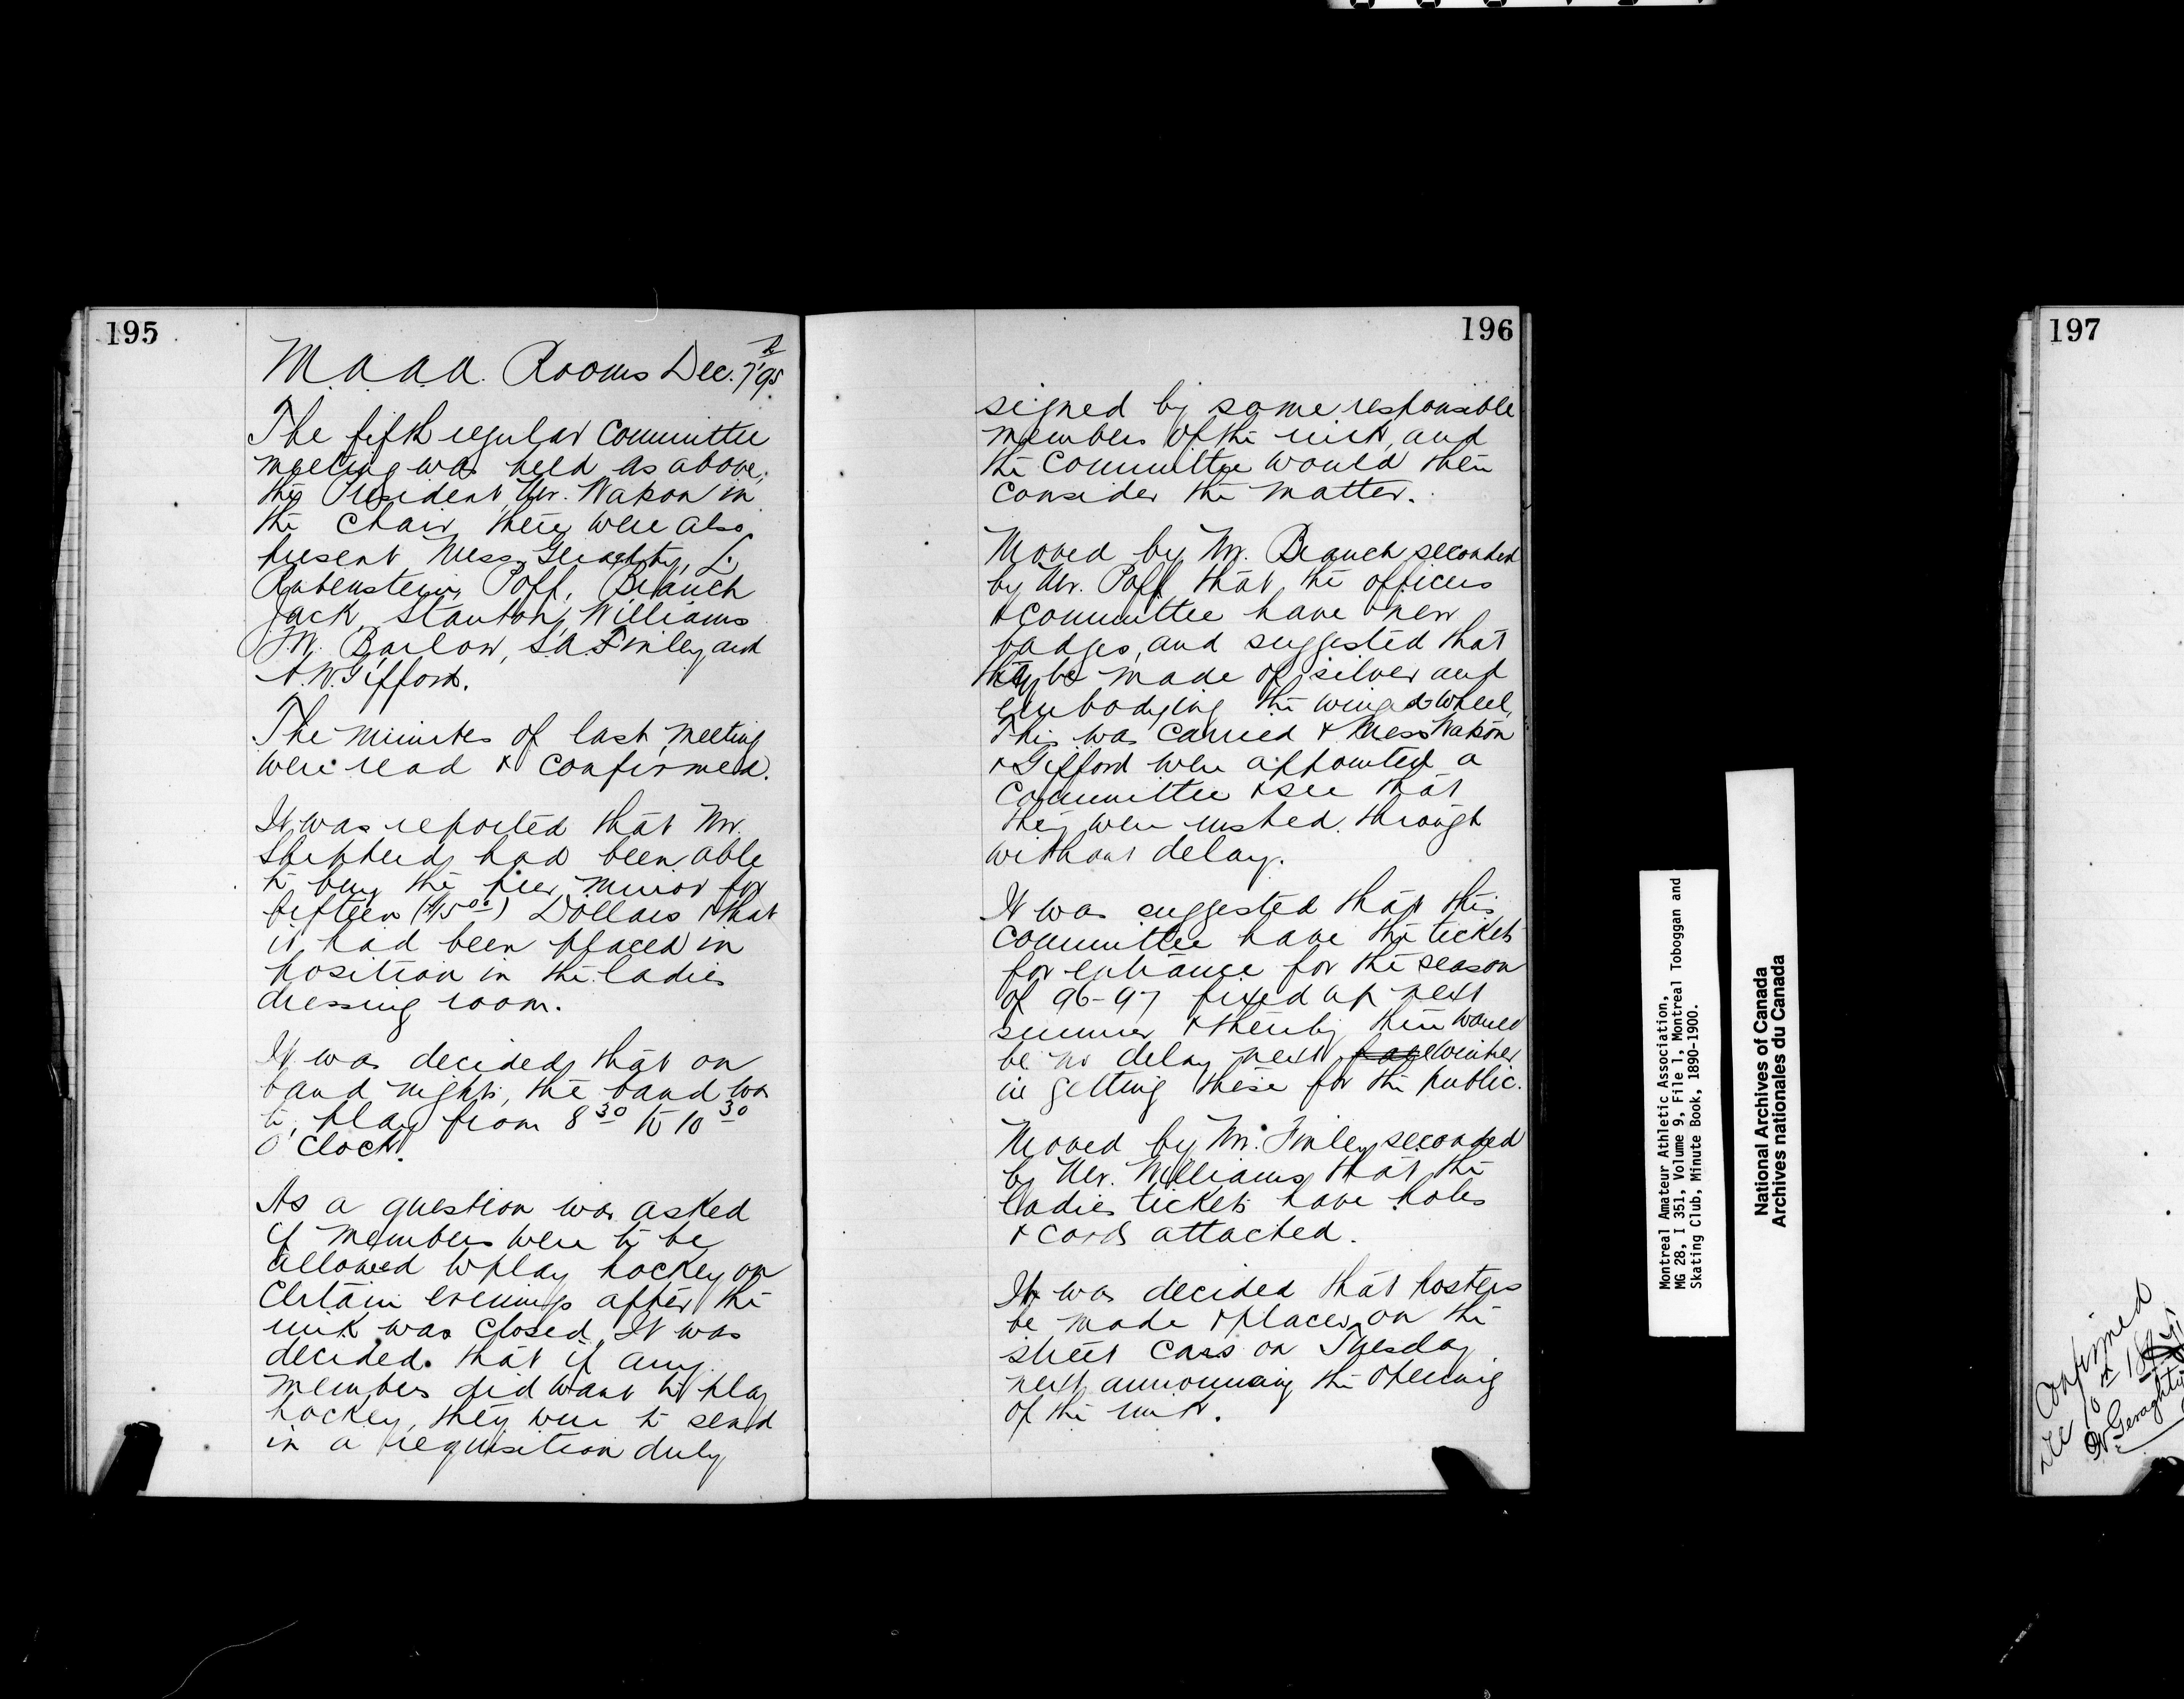 195
M.A.A.A. Rooms Dec. 7th '95
The fifth regular Committee
meeting was held as above,
the President, Mr. Watson in
the Chair, there were also
present Mess. Geraghty, L.
Rubenstein, Poff, Branch
Jack, Stanton, Williams
J.W. Barlow, S.A. Finley and
A.W. Gifford.
The minutes of last meeting
were read & confirmed.
It was reported that Mr.
Shepherd had been able
to buy the pier mirror for
fifteen ($15.00) Dollars & that
it had been placed in
position in the ladies
dressing room.
It was decided that on
band nights, the band was
to play from 8 30 to 10 30
O'Clock.
As a question was asked
if members were to be
allowed to play hockey on
certain evenings after the
rink was closed, It was
decided that if any
members did want to play
hockey, they were to send
in a requisition duly
196
signed by some responsible
members of the rink, and
the Committee would then
consider the matter.
Moved by Mr. Branch seconded
by Mr. Poff that the officers
& Committee have new
badges, and suggested that
they be made of silver and
embodying the winged wheel,
This was carried & Mess Watson
& Gifford were appointed a
Committee & see that
they were rushed through
without delay.
It was suggested that this
Committee have the tickets
for entrance for the season
of 96-97 fixed up next
summer & thereby there would
be no delay next winter
in getting these for the public.
Moved by Mr. Finley seconded
by Mr. Williams that the
ladies tickets have holes
& cords attached.
It was decided that posters
be made & placed on the
street cars on Tuesday
next announcing the opening
of the rink.
Montreal Amateur Athletic Association,
MG 28, I 351, Volume 9, File 1, Montreal Toboggan and
Skating Club, Minute Book, 1890-1900.
National Archives of Canada
Archives nationales du Canada
197
Confirmed
Geraghty